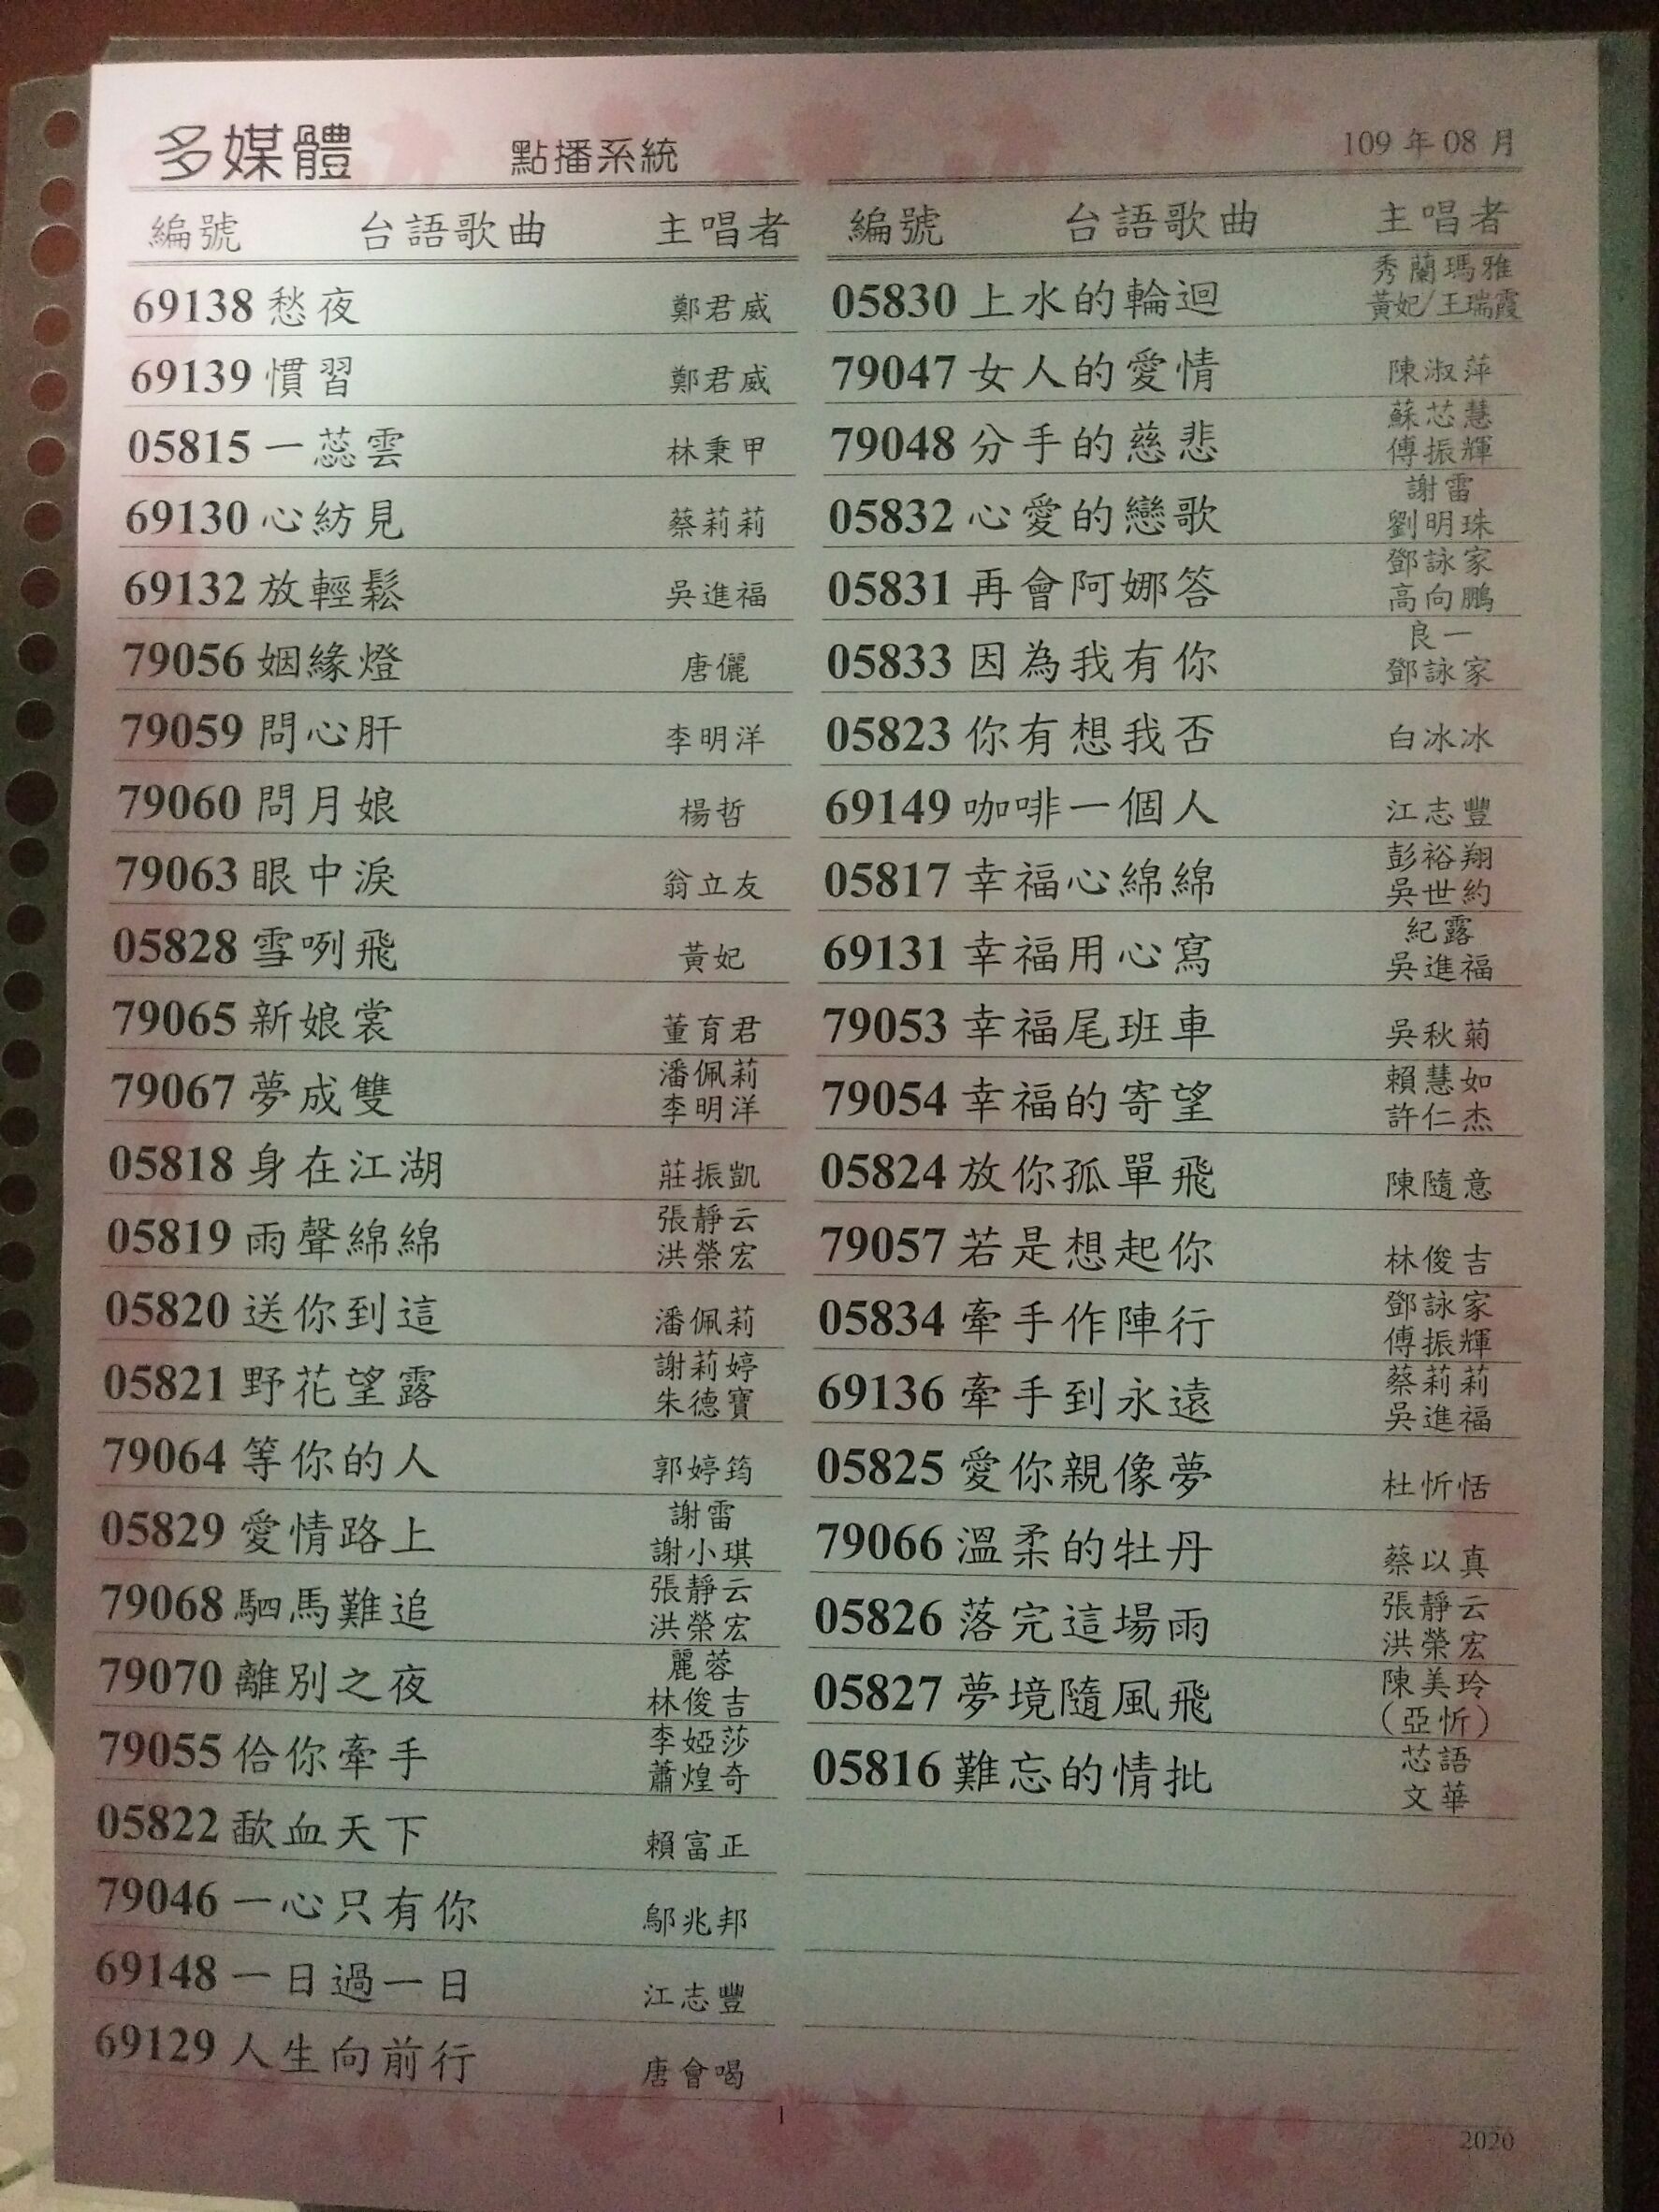 多媒體 點播系統 109 年 08 月
編號 台語歌曲 主唱者
69138 愁夜 鄭君威
69139 慣習 鄭君威
05815 一蕊雲 林秉甲
69130 心紡見 蔡莉莉
69132 放輕鬆 吳進福
79056 姻緣燈 唐儷
79059 問心肝 李明洋
79060 問月娘 楊哲
79063 眼中淚 翁立友
05828 雪咧飛 黃妃
79065 新娘裳 董育君
79067 夢成雙 潘佩莉 李明洋
05818 身在江湖 莊振凱
05819 雨聲綿綿 張靜云 洪榮宏
05820 送你到這 潘佩莉
05821 野花望露 謝莉婷 朱德寶
79064 等你的人 郭婷筠
05829 愛情路上 謝雷 謝小琪
79068 駟馬難追 張靜云 洪榮宏
79070 離別之夜 麗蓉 林俊吉
79055 佮你牽手 李婭莎 蕭煌奇
05822 歃血天下 賴富正
79046 一心只有你 鄔兆邦
69148 一日過一日 江志豐
69129 人生向前行 唐會喝
編號 台語歌曲 主唱者
05830 上水的輪迴 秀蘭瑪雅 黃妃/王瑞霞
79047 女人的愛情 陳淑萍
79048 分手的慈悲 蘇芯慧 傅振輝
05832 心愛的戀歌 謝雷 劉明珠
05831 再會阿娜答 鄧詠家 高向鵬
05833 因為我有你 良一 鄧詠家
05823 你有想我否 白冰冰
69149 咖啡一個人 江志豐
05817 幸福心綿綿 彭裕翔 吳世約
69131 幸福用心寫 紀露 吳進福
79053 幸福尾班車 吳秋菊
79054 幸福的寄望 賴慧如 許仁杰
05824 放你孤單飛 陳隨意
79057 若是想起你 林俊吉
05834 牽手作陣行 鄧詠家 傅振輝
69136 牽手到永遠 蔡莉莉 吳進福
05825 愛你親像夢 杜忻恬
79066 溫柔的牡丹 蔡以真
05826 落完這場雨 張靜云 洪榮宏
05827 夢境隨風飛 陳美玲 (亞忻)
05816 難忘的情批 芯語 文華
1
2020